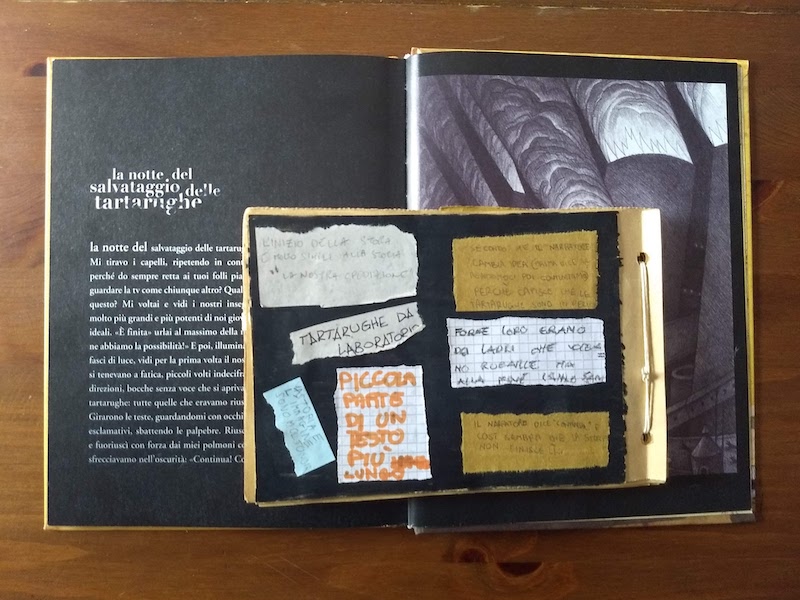 la notte del
salvataggio delle
tartarughe
la notte del salvataggio delle tartarug
Mi tiravo i capelli, ripetendo in cont
perché do sempre retta ai tuoi folli pia
guardare la tv come chiunque altro? Qual
questo? Mi voltai e vidi i nostri inseg
molto più grandi e più potenti di noi giov
ideali. «È finita» urlai al massimo della
ne abbiamo la possibilità!» E poi, illumina
fasci di luce, vidi per la prima volta il nos
si tenevano a fatica, piccoli volti indecifra
direzioni, bocche senza voce che si apriva
tartarughe: tutte quelle che eravamo riusc
Girarono le teste, guardandomi con occhi
esclamativi, sbattendo le palpebre. Riusc
e fuoriuscì con forza dai miei polmoni co
sfrecciavamo nell'oscurità: «Continua! Co
L'INIZIO DELLA STORIA
È MOLTO SIMILE ALLA STORIA
"LA NOSTRA SPEDIZIONE"
TARTARUGHE DA
LABORATORIO
PICCOLA
PARTE
DI UN
TESTO
PIÙ
LUNGO
SECONDO ME IL NARRATORE
CAMBIA
PERCHÉ CAPISCE CHE LE
TARTARUGHE SONO IN
FORSE LORO ERANO
DEI LADRI CHE VOLEVA
NO RUBARLE MA
ALLA FINE
IL NARRATORE DICE "CONTINUA" E
COSÌ SEMBRA CHE LA STORIA
NON FINISCE